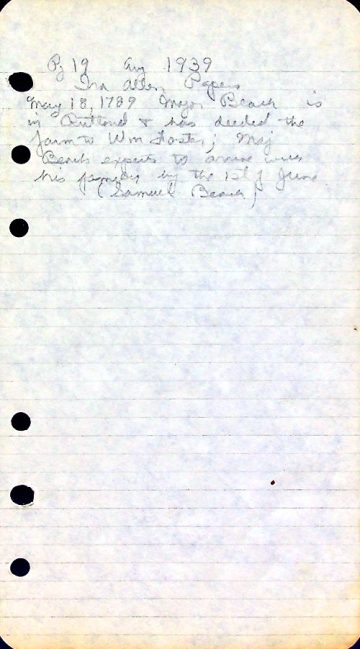 Pg 19 Aug 1939
Ira Allen Papers
May 18, 1789 Major Beach is
in Rutland & has deeded the
farm to Wm Foster; Maj
Beach expects to arrive with
his family by the 1st of June
(Samuel Beach)